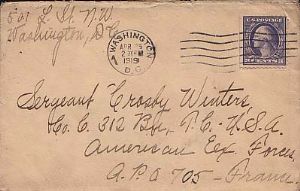 501 L St. N.W.
Washington, D.C.
WASHINGTON
APR
1919
D.C.
U.S. POSTAGE
3 CENTS 3
Sergeant Crosby Winters,
Co. C. 312 Bn, T. C. U.S.A.
American Ex Forces,
A.P.O 705 - France.